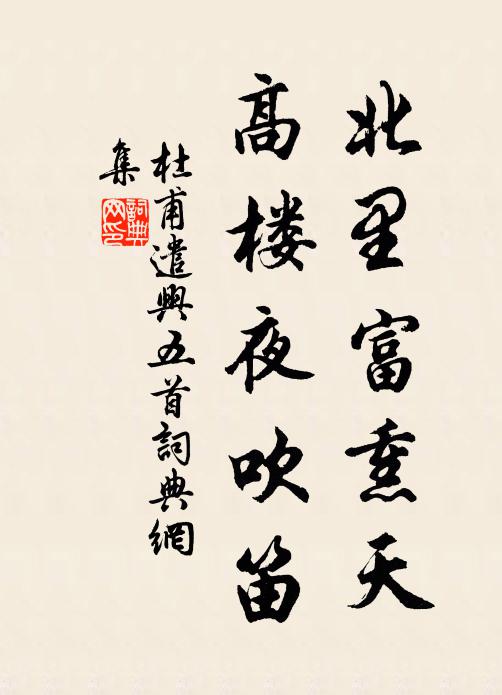 北里富熏天
高楼夜吹笛
杜甫遣興五首詞典網
集
詞典
网印